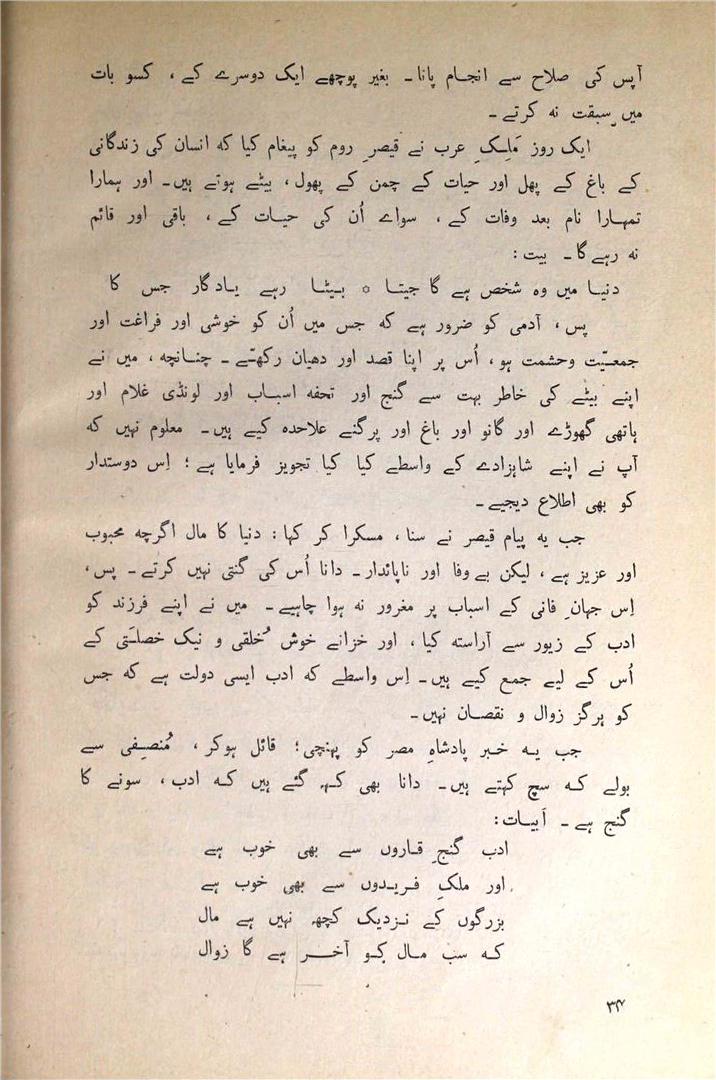 آپس کی صلاح سے انجام پانا۔ بغیر پوچھے ایک دوسرے کے، کسو بات
میں سبقت نہ کرتے۔
ایک روز مَلِکِ عرب نے قیصرِ روم کو پیغام کیا کہ انسان کی زندگانی
کے باغ کے پھل اور حیات کے چمن کے پھول، بیٹے ہوتے ہیں۔ اور ہمارا
تمہارا نام بعد وفات کے، سواے اُن کی حیات کے، باقی اور قائم
نہ رہے گا۔ بیت:
دنیا میں وہ شخص ہے گا جیتا ٭ بیٹا رہے یادگار جس کا
پس، آدمی کو ضرور ہے کہ جس میں اُن کو خوشی اور فراغت اور
جمعیّت وحشمت ہو، اُس پر اپنا قصد اور دھیان رکھتے۔ چنانچہ، میں نے
اپنے بیٹے کی خاطر بہت سے گنج اور تحفہ اسباب اور لونڈی غلام اور
ہاتھی گھوڑے اور گانو اور باغ اور پرگنے علاحدہ کیے ہیں۔ معلوم نہیں کہ
آپ نے اپنے شاہزادے کے واسطے کیا کیا تجویز فرمایا ہے؛ اِس دوستدار
کو بھی اطلاع دیجیے۔
جب یہ پیام قیصر نے سنا، مسکرا کر کہا: دنیا کا مال اگرچہ محبوب
اور عزیز ہے، لیکن بےوفا اور ناپائدار۔ دانا اُس کی گنتی نہیں کرتے۔ پس،
اِس جہانِ فانی کے اسباب پر مغرور نہ ہوا چاہیے۔ میں نے اپنے فرزند کو
ادب کے زیور سے آراستہ کیا، اور خزانے خوش خُلقی و نیک خصلَتی کے
اُس کے لیے جمع کیے ہیں۔ اِس واسطے کہ ادب ایسی دولت ہے کہ جس
کو ہرگز زوال و نقصان نہیں۔
جب یہ خبر پادشاہِ مصر کو پہنچی؛ قائل ہوکر، مُنصِفی سے
بولے کہ سچ کہتے ہیں۔ دانا بھی کہہ گئے ہیں کہ ادب، سونے کا
گنج ہے۔ اَبیات:
ادب گنجِ قاروں سے بھی خوب ہے
اور ملکِ فریدوں سے بھی خوب ہے
بزرگوں کے نزدیک کچھ نہیں ہے مال
کہ سب مال کو آخر ہے گا زوال
۳۴